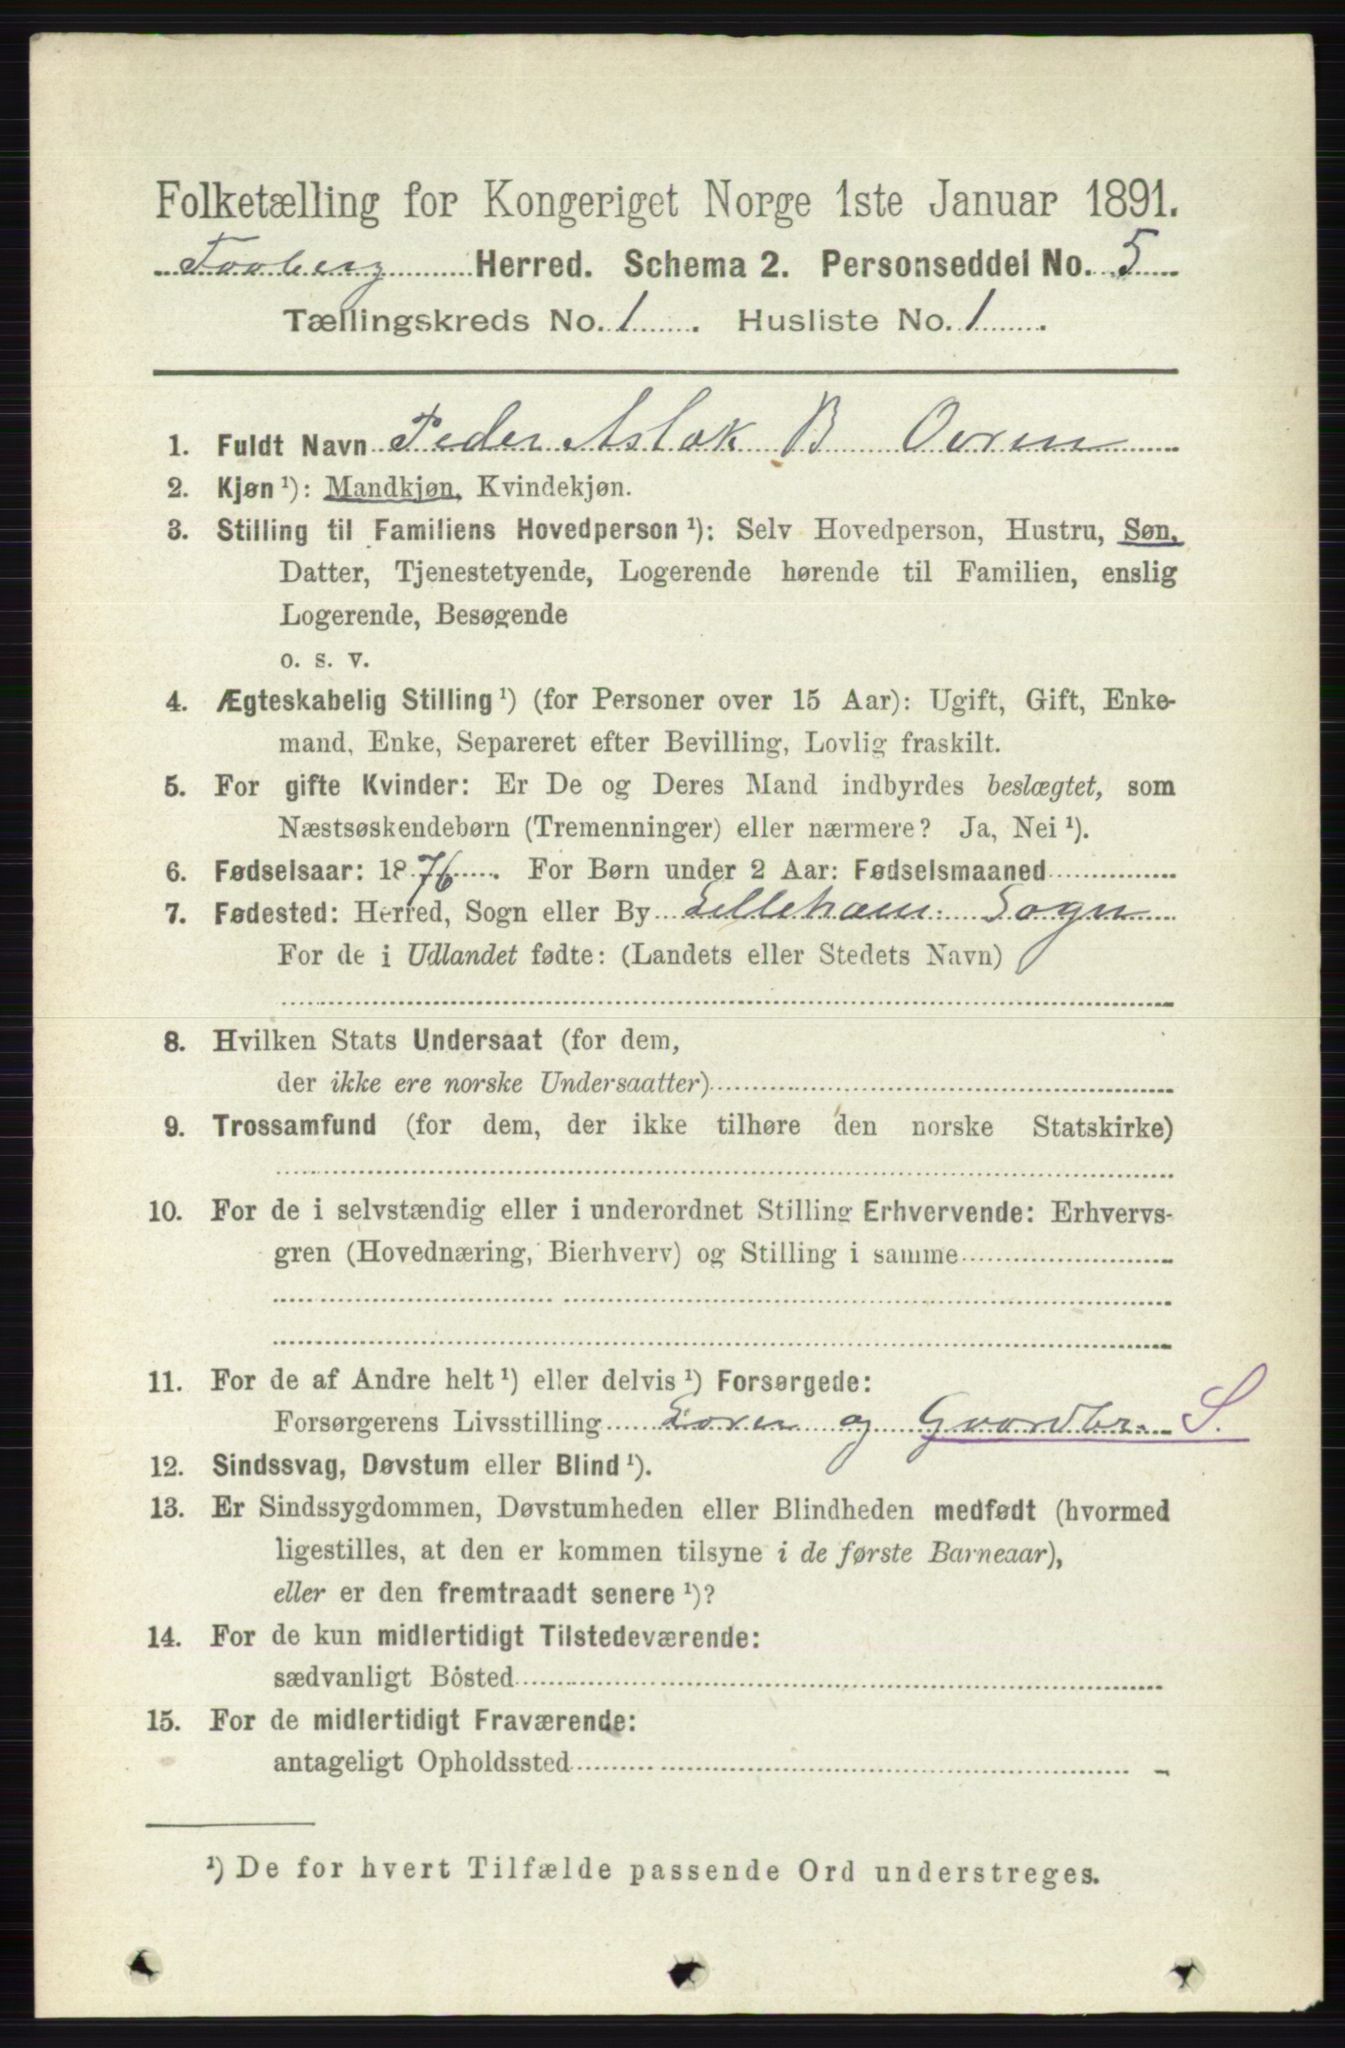 Folketælling for Kongeriget Norge 1ste Januar 1891.
Faaberg Herred. Schema 2. Personseddel No. 5
Tællingskreds No. 1. Husliste No. 1.
1. Fuldt Navn Peder Aslak B Owren
2. Kjøn ¹): Mandkjøn, Kvindekjøn.
3. Stilling til Familiens Hovedperson ¹): Selv Hovedperson, Hustru, Søn,
Datter, Tjenestetyende, Logerende hørende til Familien, enslig
Logerende, Besøgende
o. s. v.
4. Ægteskabelig Stilling ¹) (for Personer over 15 Aar): Ugift, Gift, Enke-
mand, Enke, Separeret efter Bevilling, Lovlig fraskilt.
5. For gifte Kvinder: Er De og Deres Mand indbyrdes beslægtet, som
Næstsøskendebørn (Tremenninger) eller nærmere? Ja, Nei ¹).
6. Fødselsaar: 1876. For Børn under 2 Aar: Fødselsmaaned
7. Fødested: Herred, Sogn eller By Lilleham: Sogn
For de i Udlandet fødte: (Landets eller Stedets Navn)
8. Hvilken Stats Undersaat (for dem,
der ikke ere norske Undersaatter)
9. Trossamfund (for dem, der ikke tilhøre den norske Statskirke)
10. For de i selvstændig eller i underordnet Stilling Erhvervende: Erhvervs-
gren (Hovednæring, Bierhverv) og Stilling i samme
11. For de af Andre helt ¹) eller delvis ¹) Forsørgede:
Forsørgerens Livsstilling og Gaardbr. S.
12. Sindssvag, Døvstum eller Blind ¹).
13. Er Sindssygdommen, Døvstumheden eller Blindheden medfødt (hvormed
ligestilles, at den er kommen tilsyne i de første Barneaar),
eller er den fremtraadt senere ¹)?
14. For de kun midlertidigt Tilstedeværende:
sædvanligt Bosted
15. For de midlertidigt Fraværende:
antageligt Opholdssted
¹) De for hvert Tilfælde passende Ord understreges.